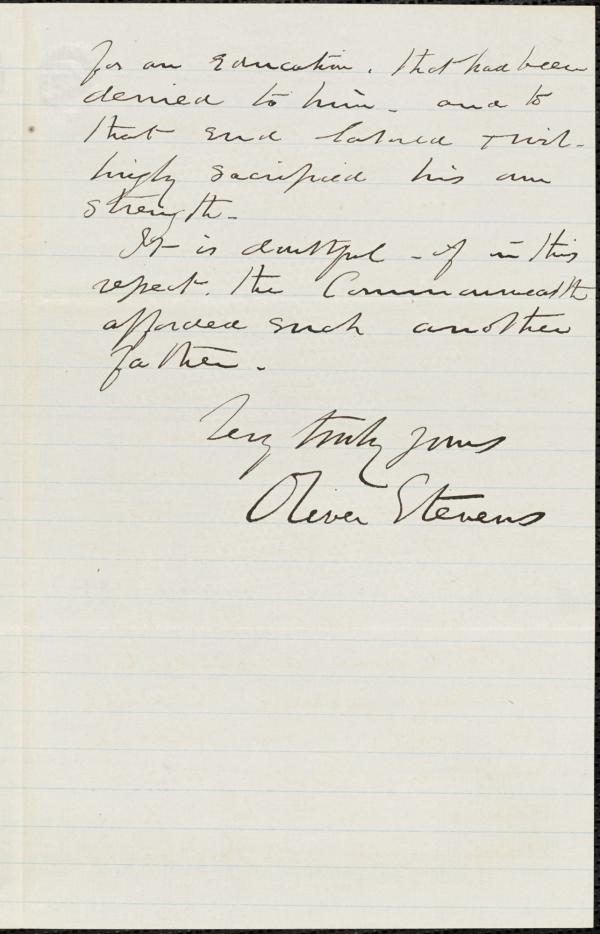 for an education, that had been
denied to him - and to
that end labored & wil-
lingly sacrificed his own
strength -
It is doubtful - if in this
respect, the Commonwealth
afforded such another
father.
Very truly yours
Oliver Stevens